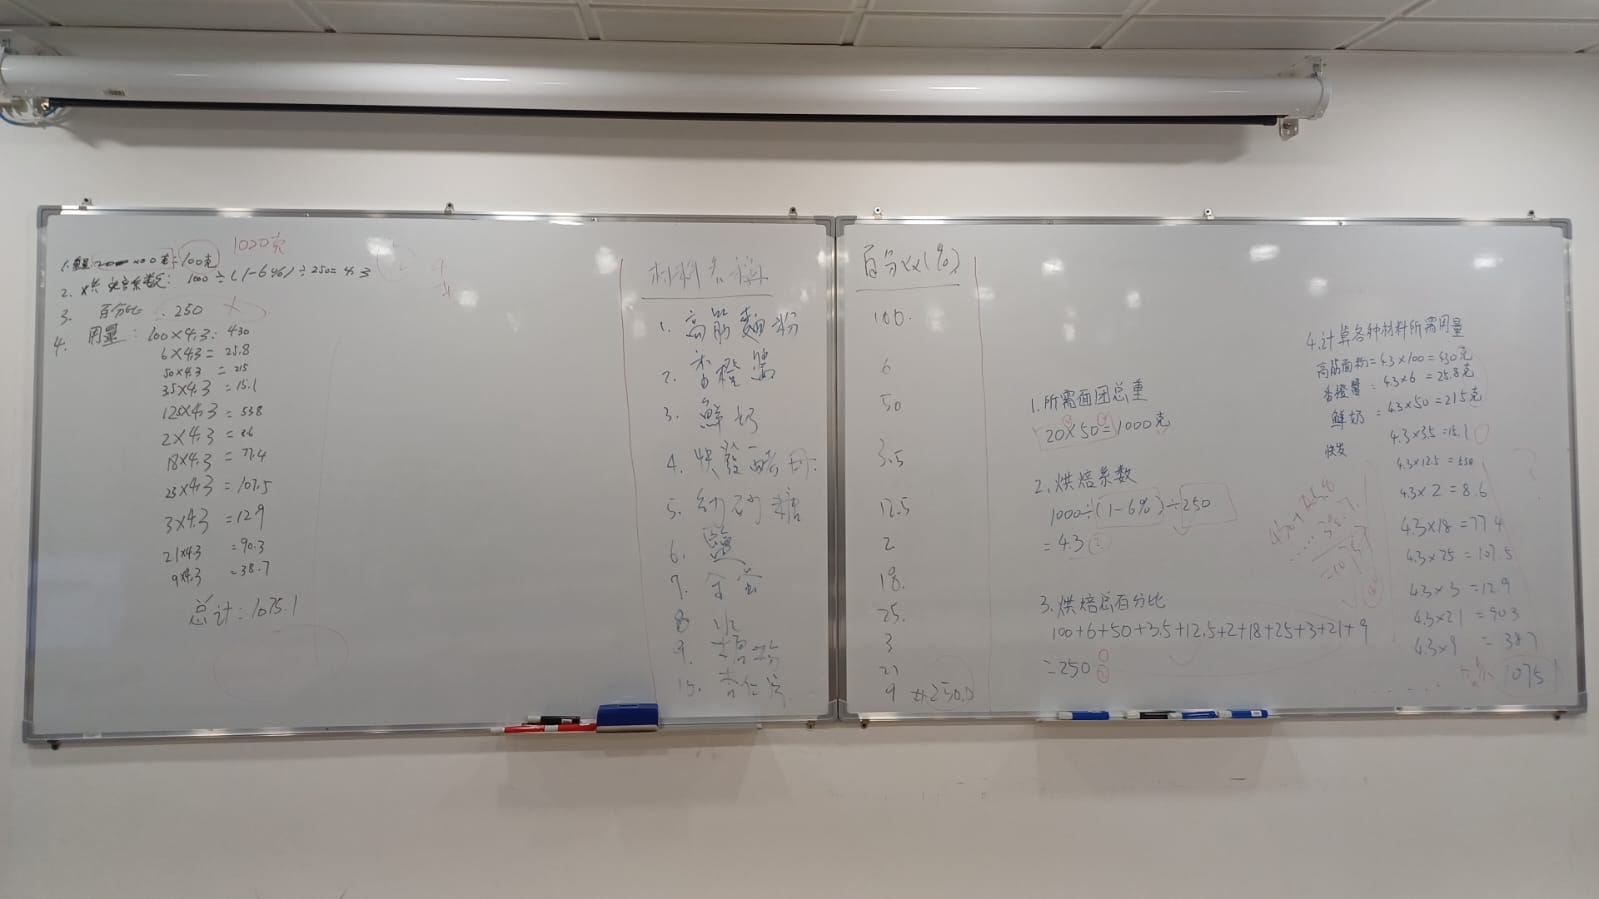 1000克
100克
2. 1000÷(1-6%)÷250=4.3
3. 百分比 . 250
4. 用量: 100×4.3: 430
6×4.3= 25.8
50×4.3 = 215
35×4.3 =15.1
2×4.3
18×4.3 =77.4
=107.5
3×4.3 =12.9
21×4.3 =90.3
9×4.3 =38.7
总计:1075.1
材料名稱
1. 高筋麵粉
2. 香橙
3. 鮮奶
4. 快發酵母
5. 幼砂糖
6. 鹽
7.
8
9.
10. 杏仁
百分比(%)
100.
6
50
3.5
12.5
2
18.
25.
3
21
9
1.所需面团总重
20×50=1000克
2.烘焙系数
1000÷(1-6%)÷250
=4.3
3.烘焙总百分比
100+6+50+3.5+12.5+2+18+25+3+21+9
=250
4.计算各种材料所需用量
高筋面粉=4.3×100=430克
香橙 : 4.3×6 =25.8克
鲜奶 : 4.3×50=215克
快发 4.3×3.5=15.1
4.3×12.5
4.3×2=8.6
4.3×18=77.4
4.3×25=107.5
4.3×3=12.9
4.3×21=90.3
4.3×9 =38.7
1075.1